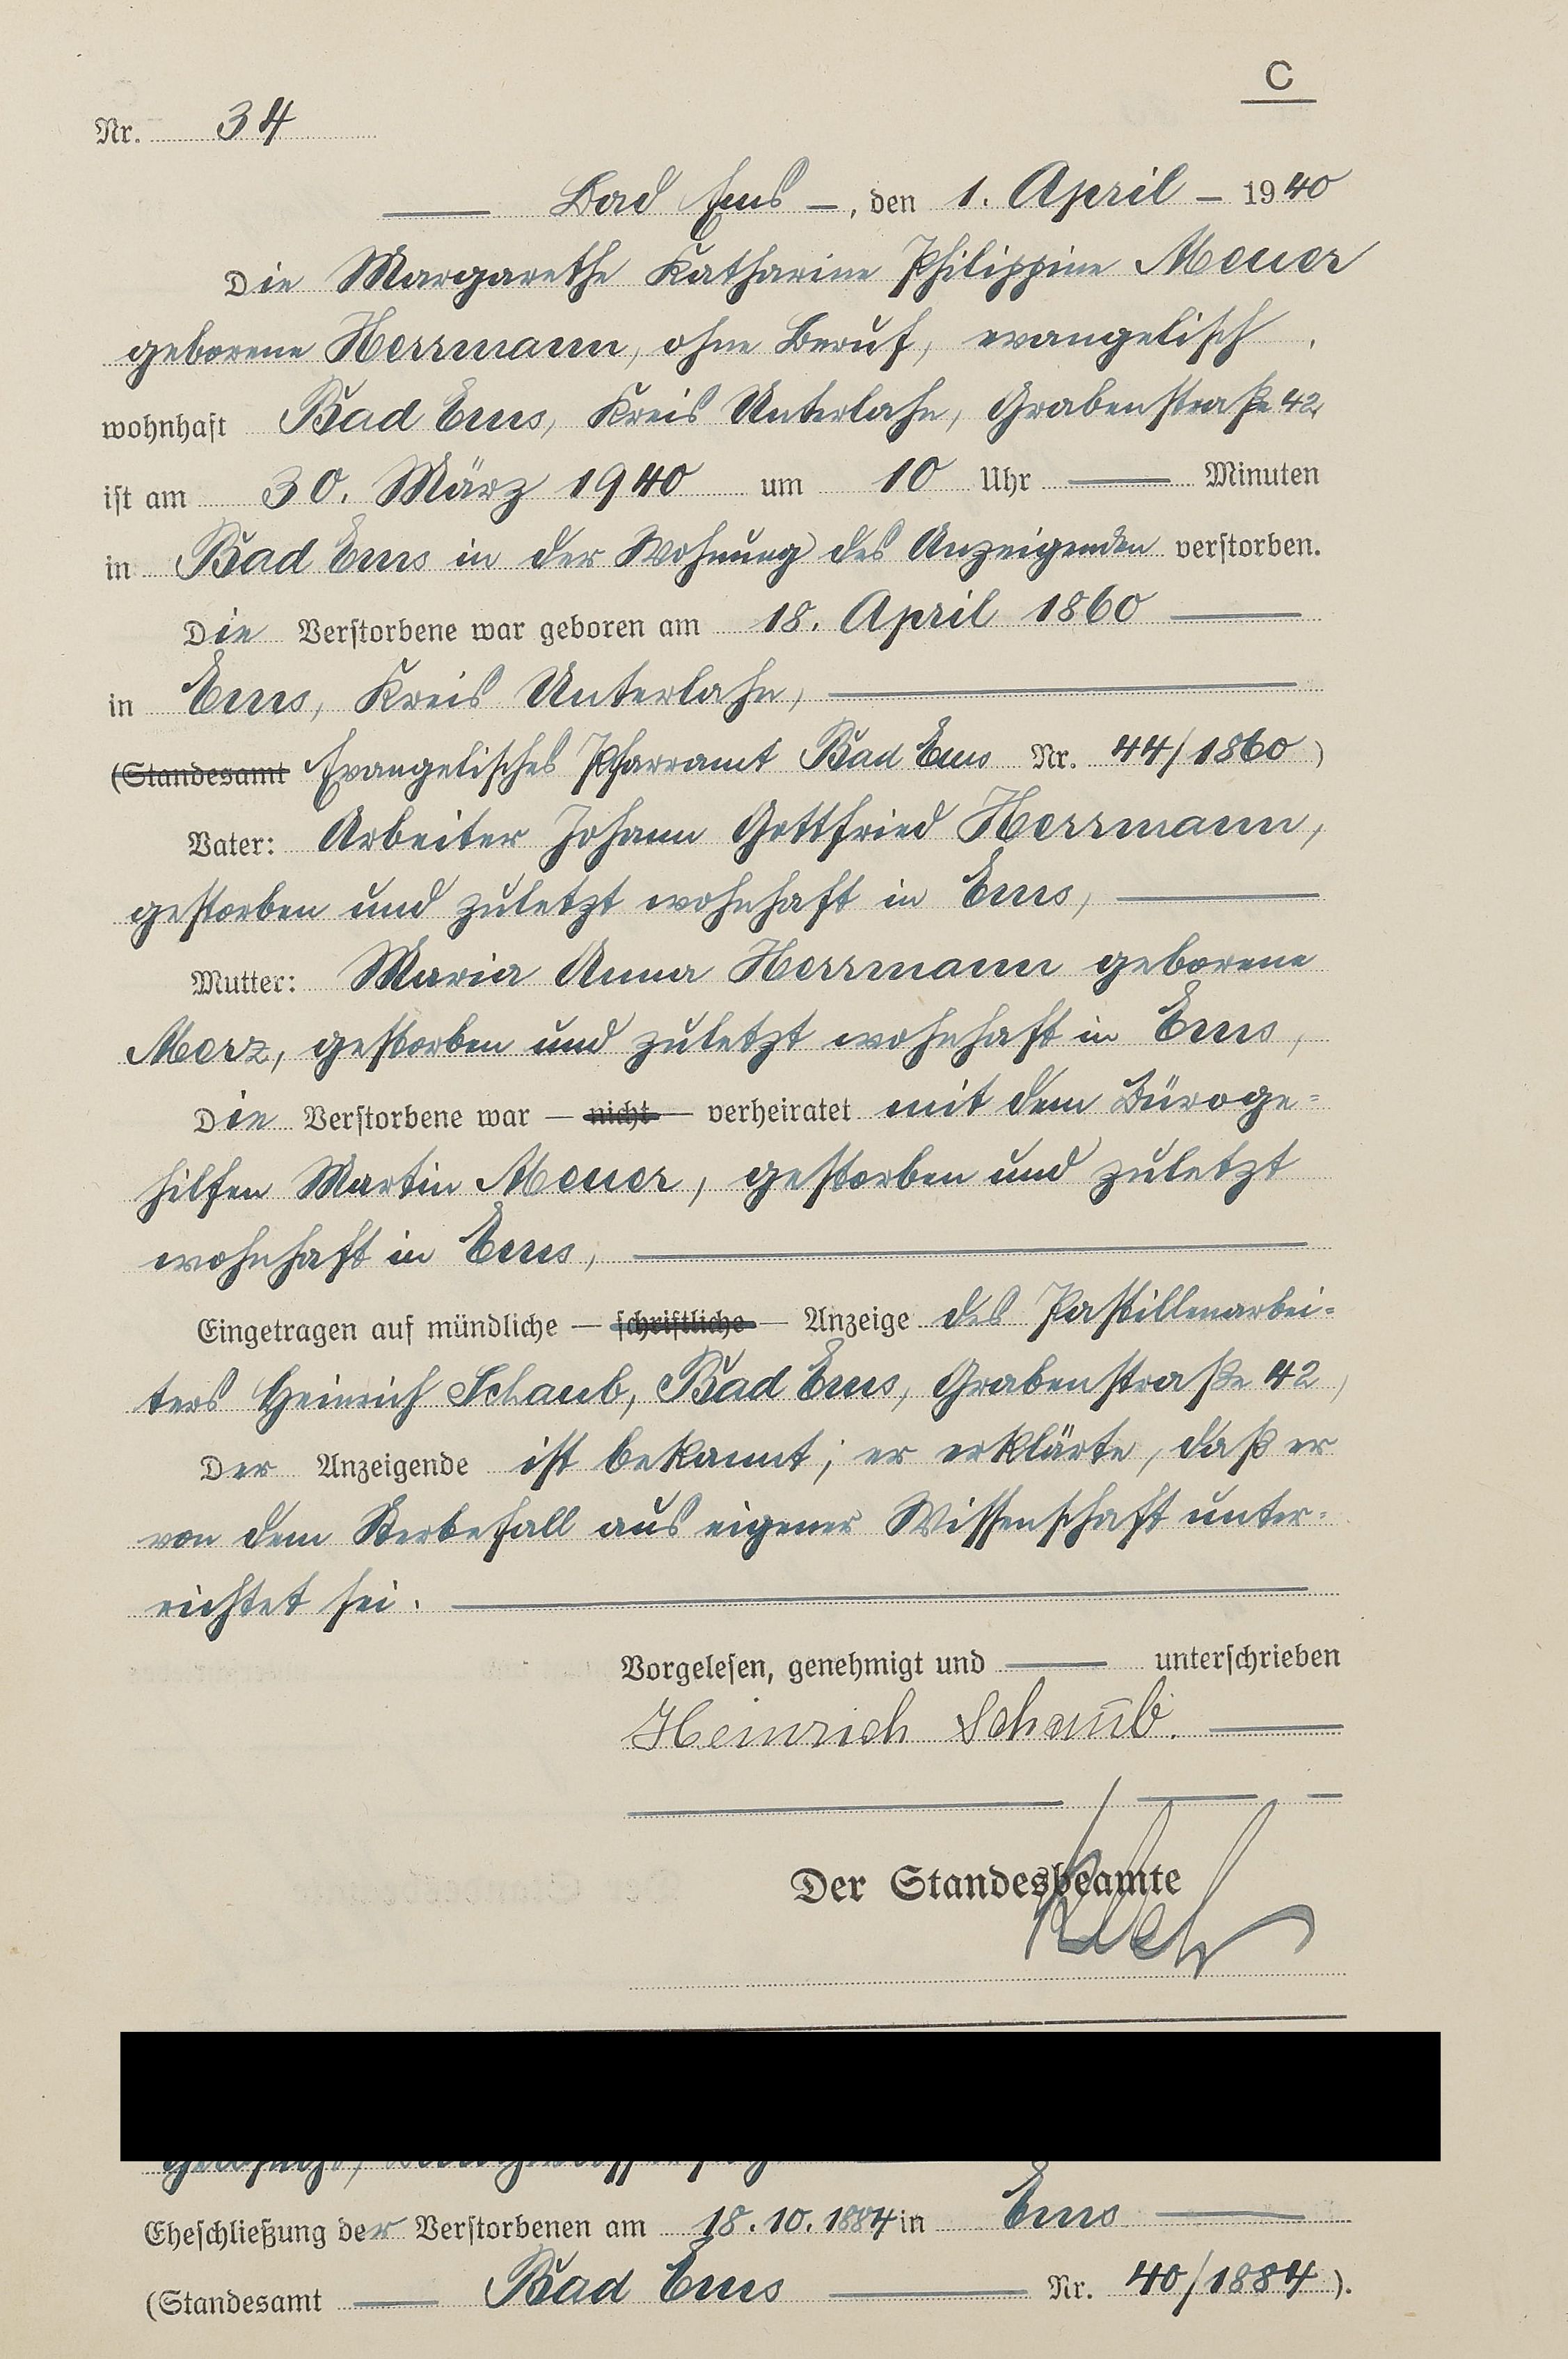 C
Nr. 34
Bad Ems —, den 1. April — 1940
Die Margarethe Katharine Philippine Meuer
geborene Herrmann, ohne Beruf, evangelisch
wohnhaft Bad Ems, Kreis Unterlahn, Grabenstraße 42,
ist am 30. März 1940 um 10 Uhr — Minuten
in Bad Ems in der Wohnung des Anzeigenden verstorben.
Die Verstorbene war geboren am 18. April 1860 —
in Ems, Kreis Unterlahn, —
(Standesamt Evangelisches Pfarramt Bad Ems Nr. 44/1860)
Vater: Arbeiter Johann Gottfried Herrmann,
gestorben und zuletzt wohnhaft in Ems, —
Mutter: Maria Anna Herrmann geborene
Merz, gestorben und zuletzt wohnhaft in Ems,
Die Verstorbene war — nicht — verheiratet mit dem Büroge=
hilfen Martin Meuer, gestorben und zuletzt
wohnhaft in Ems, —
Eingetragen auf mündliche — schriftliche — Anzeige des Pastillenarbei=
ters Heinrich Schaub, Bad Ems, Grabenstraße 42,
Der Anzeigende ist bekannt; er erklärte, daß er
von dem Sterbefall aus eigener Wissenschaft unter=
richtet sei. —
Vorgelesen, genehmigt und — unterschrieben
Heinrich Schaub. —
Der Standesbeamte
Eheschließung der Verstorbenen am 18.10.1884 in Ems —
(Standesamt — Bad Ems — Nr. 40/1884).